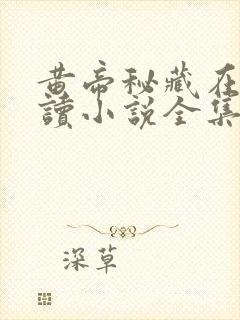 黄帝秘藏在
讀小說全集
深草